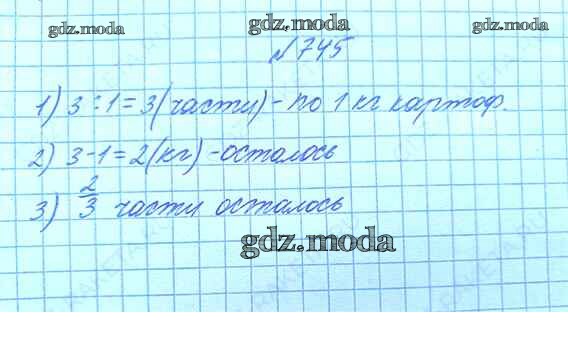 gdz.moda
gdz.moda
№745
1) 3:1=3(части)-по 1 кг картоф.
2) 3-1=2(кг)-осталось
3) 2/3 части осталось
gdz.moda